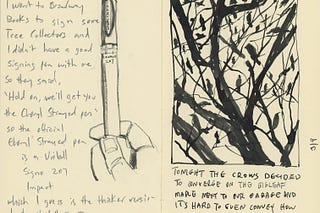 I went to Broadway
Books to sign some
Tree Collectors and
I didn't have a good
signing pen with me
so they said,
"Hold on, we'll get you
the Cheryl Strayed pen"
so the official
Cheryl Strayed pen
is a Uniball
Signo 207
Impact
which I guess is the thicker version
207
TONIGHT THE CROWS DECIDED
TO CONVERGE ON THE BIGLEAF
MAPLE NEXT TO OUR GARAGE AND
IT'S HARD TO EVEN CONVEY HOW
3/9